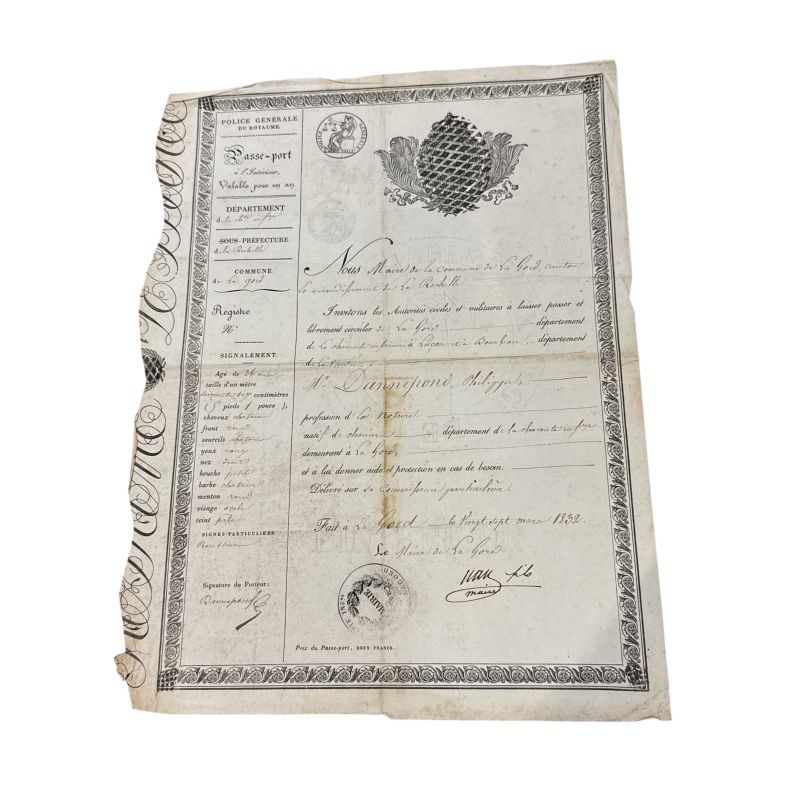 POLICE GÉNÉRALE
DU ROYAUME.
Passe-port
à l'Intérieur,
Valable pour un an.
DÉPARTEMENT
de la
SOUS-PRÉFECTURE
de la Rochelle
COMMUNE
de La Gord
Registre
N.º
SIGNALEMENT.
Agé de 36 ans
taille d'un mètre
centimètres
(5 pieds 1 pouce),
cheveux chatain
front rond
sourcils chatain
yeux roux
nez droit
bouche petite
barbe chatain
menton rond
visage ovale
teint pale
SIGNES PARTICULIERS
Signature du Porteur:
Dannepond
Nous Maire de la Commune de La Gord, canton
et arrondissement de La Rochelle
Invitons les Autorités civiles et militaires à laisser passer et
librement circuler de La Gord département
de la charente inférieure à Luçon et à Bourbon, département
de la Vendée,
Mr. Dannepond, Philippe
profession de Notaire
natif de département de la charente infre
demeurant à La Gord
et à lui donner aide et protection en cas de besoin.
Délivré sur sa particulière.
Fait à La Gord le vingt sept mars 1832.
Le Maire de La Gord
fils
maire
MAIRIE
Prix du Passe-port, DEUX FRANCS.